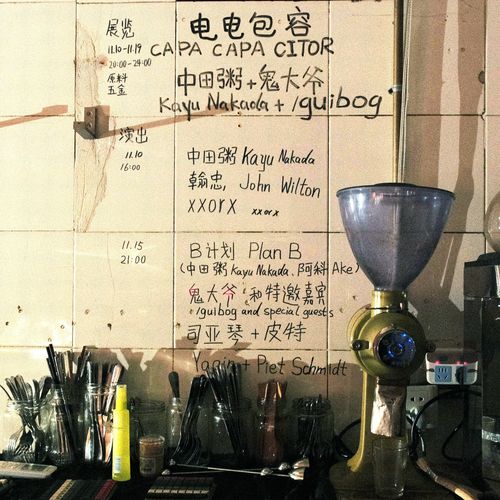 展览
11.10-11.19
20:00-24:00
原料
五金
电电包容
CAPA CAPA CITOR
中田粥+鬼大爷
Kayu Nakada + /guibog
演出
11.10
16:00
中田粥 Kayu Nakada
翰忠, John Wilton
xxorx xxorx
11.15
21:00
B计划 Plan B
(中田粥 Kayu Nakada, 阿科 Ake)
鬼大爷 和特邀嘉宾
/guibog and special guests
司亚琴+皮特
Yaqin + Piet Schmidt